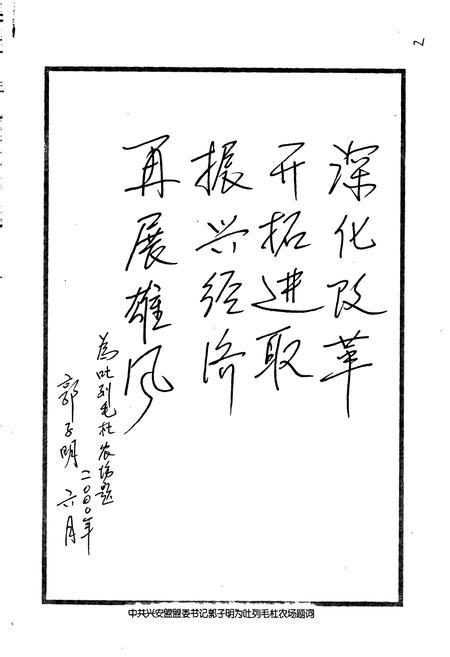 2
深化改革
开拓进取
振兴经济
再展雄风
为吐列毛杜农场题
二〇〇〇年
郭子明 六月
中共兴安盟盟委书记郭子明为吐列毛杜农场题词